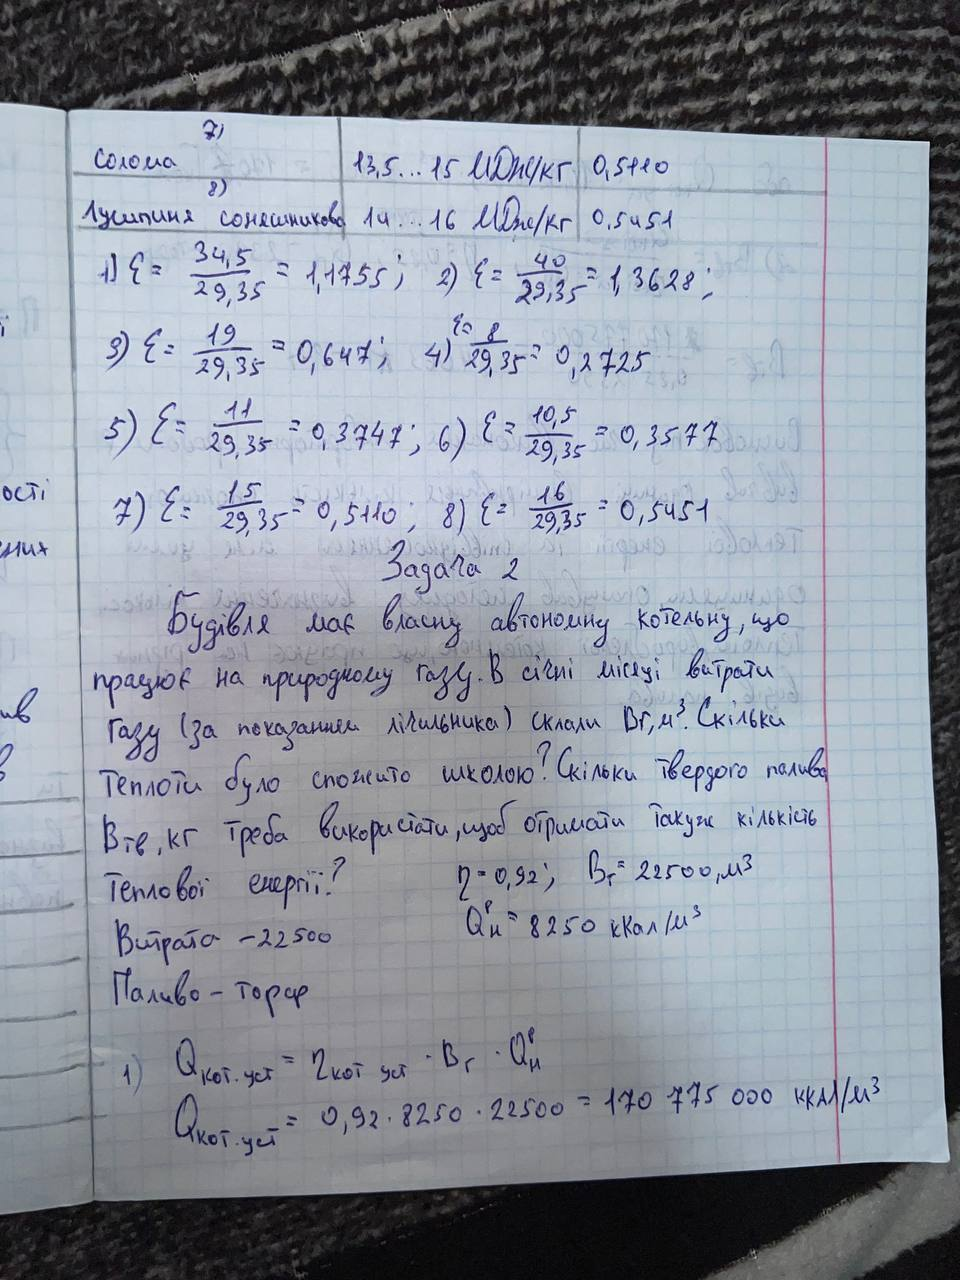 7)
Солома 13,5...15 МДж/кг 0,5110
8)
Лушпиння соняшникове 14...16 МДж/кг 0,5451
1) ε = 34,5/29,35 = 1,1755; 2) ε = 40/29,35 = 1,3628;
3) ε = 19/29,35 = 0,647; 4) ε = 8/29,35 = 0,2725
5) ε = 11/29,35 = 0,3747; 6) ε = 10,5/29,35 = 0,3577
7) ε = 15/29,35 = 0,5110; 8) ε = 16/29,35 = 0,5451
Задача 2
Будівля має власну автономну котельну, що
працює на природному газу. В січні місяці витрати
газу (за показаннями лічильника) склали Вг, м³. Скільки
теплоти було спожито школою? Скільки твердого палива
Втв, кг треба використати, щоб отримати таку ж кількість
теплової енергії? η = 0,92; Вг = 22500, м³
Витрата - 22500 Qнᵖ = 8250 ккал/м³
Паливо - торф
1) Qкот.уст = ηкот уст · Вг · Qнᵖ
Qкот.уст = 0,92 · 8250 · 22500 = 170 775 000 ккал/м³